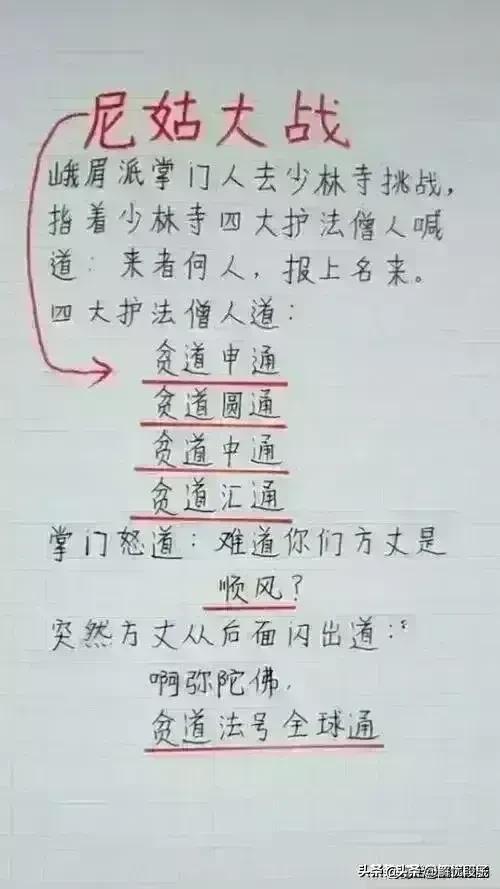 尼姑大战
峨眉派掌门人去少林寺挑战，
指着少林寺四大护法僧人喊
道：来者何人，报上名来。
四大护法僧人道：
贫道申通
贫道圆通
贫道中通
贫道汇通
掌门怒道：难道你们方丈是
顺风？
突然方丈从后面闪出道：
啊弥陀佛，
贫道法号全球通